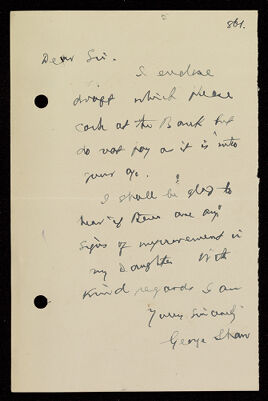 861.
Dear Sir.
I enclose
draft which please
cash at the Bank but
do not pay it into
your a/c.
I shall be glad to
hear if there are any
signs of improvement in
my Daughter With
Kind regards I am
Yours Sincerely
George Shaw